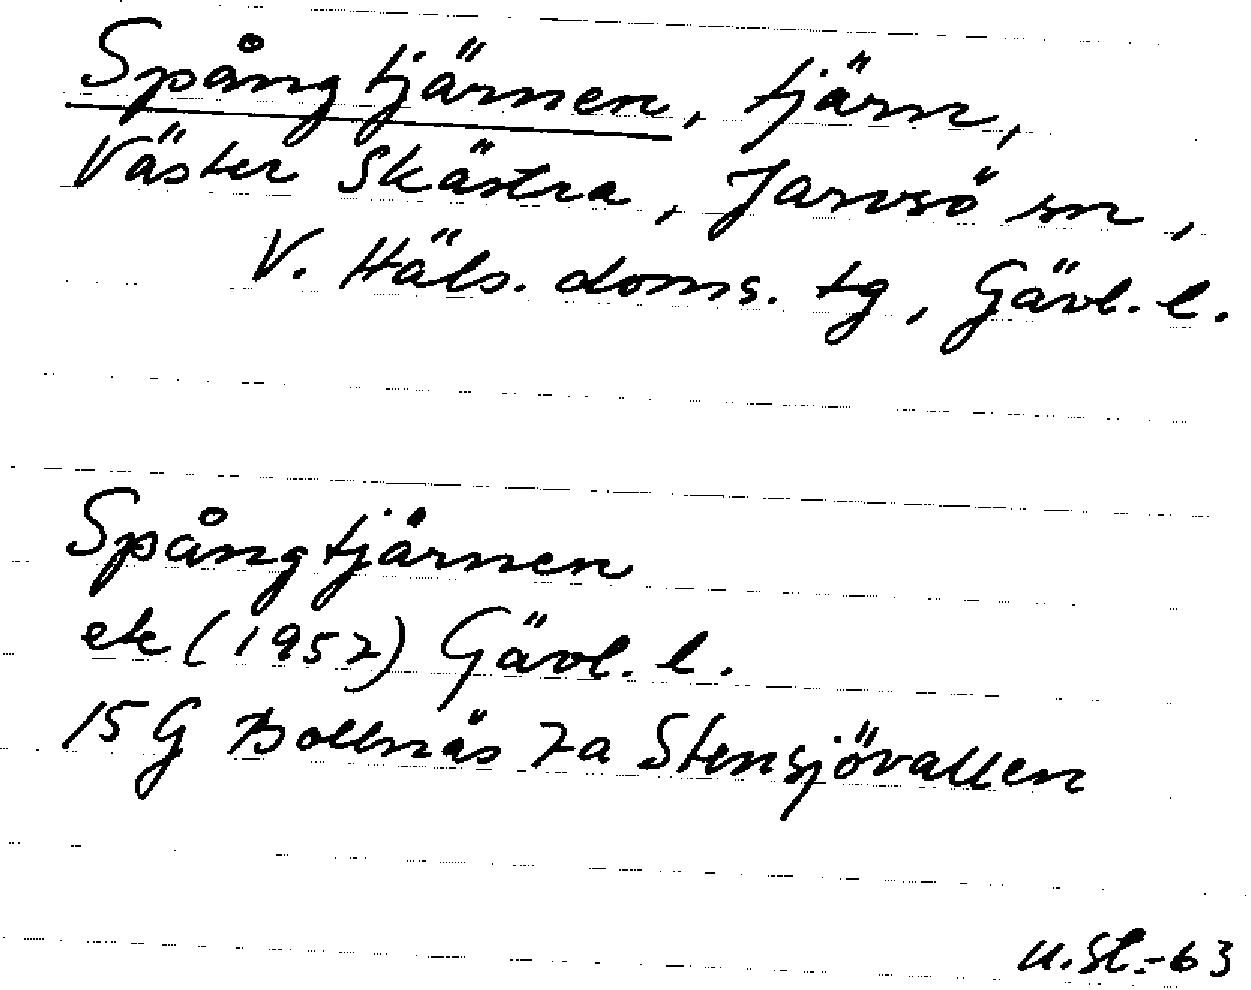 Spångtjärnen, tjärn,
Väster Skästra, Jarvsö sn,
V. Häls. doms. tg, Gävl. l.
Spångtjärnen
ek (1957) Gävl. l.
15 G Bollnäs 7a Stensjövallen
U.St.-63